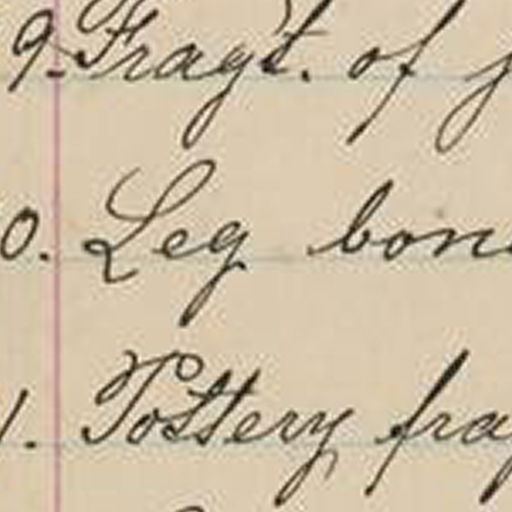 9. Fragt. of
0. Leg bon
1. Pottery, fra